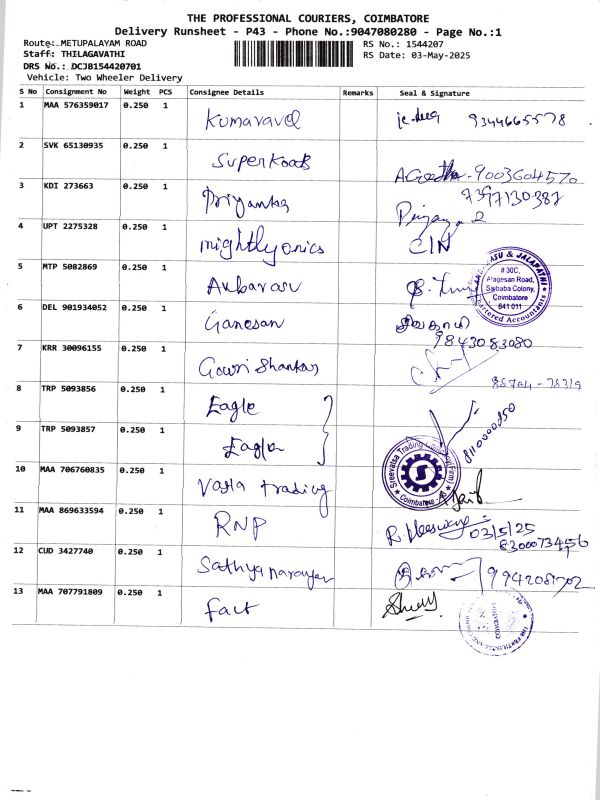 THE PROFESSIONAL COURIERS, COIMBATORE
Delivery Runsheet - P43 - Phone No.:9047080280 - Page No.:1
Route: METUPALAYAM ROAD
RS No.: 1544207
Staff: THILAGAVATHI
RS Date: 03-May-2025
DRS No.: DCJB154420701
Vehicle: Two Wheeler Delivery
S No Consignment No Weight PCS Consignee Details Remarks Seal & Signature
1 MAA 576359017 0.250 1 Kumaravel 9344665578
2 SVK 65130935 0.250 1 Superkoats 9003604570
3 KDI 273663 0.250 1 Priyanka 7397130387
4 UPT 2275328 0.250 1 mightlyonics CIN
5 MTP 5082869 0.250 1 Anbarasu
ASU & JALAPATHI
# 30C,
Alagesan Road,
Saibaba Colony,
Coimbatore
641 011
Chartered Accountants
6 DEL 901934052 0.250 1 Ganesan சிவகாமி
9843083080
7 KRR 30096155 0.250 1 Gowri Shankar
8 TRP 5093856 0.250 1 Eagle
9 TRP 5093857 0.250 1 Eagle
Sreevatsa Trading Company Firm
Coimbatore
10 MAA 706760835 0.250 1 Vasta trading
11 MAA 869633594 0.250 1 RNP 03/5/25
8300073456
12 CUD 3427740 0.250 1 Sathya narayan 9942081702
13 MAA 707791809 0.250 1 fact
COIMBATORE